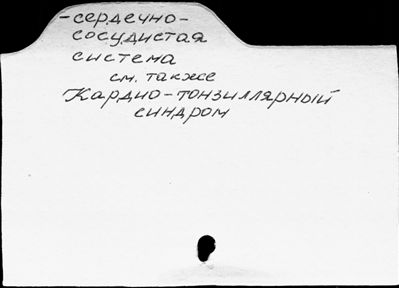 -сердечно-
сосудистая
система
см. также
Кардио-тонзиллярный
синдром